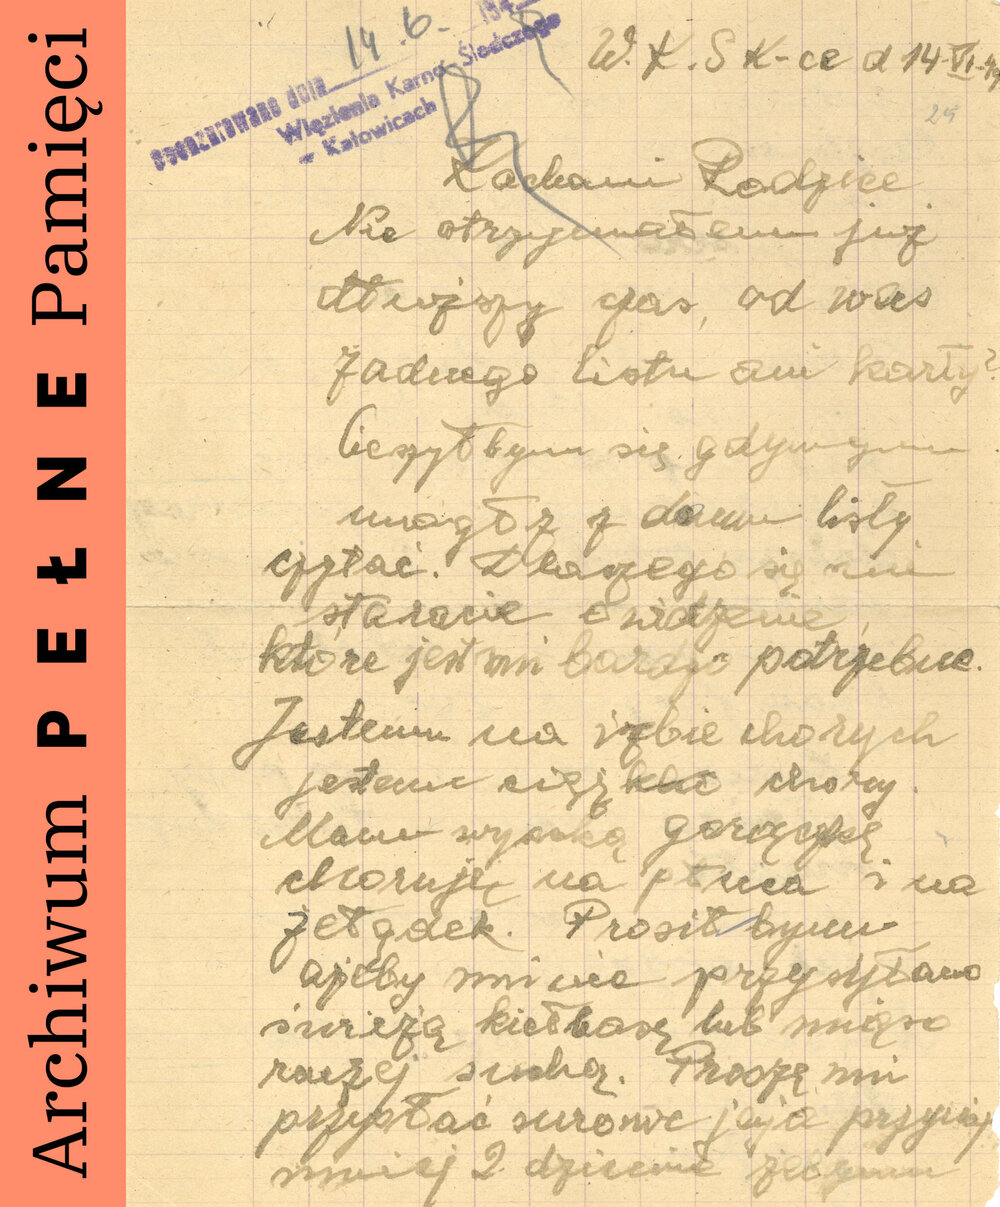 Archiwum PEŁNE Pamięci
14 6. 194
OCENZUROWANO DNIA
Więzienie Karno-Śledczego
w Katowicach
W.K.S K-ce d 14-VI-49
29
Kochani Rodzice
Nie otrzymałem już
dłuższy czas, od was
żadnego listu ani karty?
Cieszyłbym się gdybym
mógł z domu listy
czytać. Dlaczego się nie
staracie o widzenie,
które jest mi bardzo potrzebne.
Jestem na izbie chorych
jestem ciężko chory.
Mam wysoką gorączkę
choruję na płuca i na
żełądek. Prosiłbym
ażeby mi nie przysyłano
świeżą kiełbasę lub mięso
raczej suchą. Proszę mi
przysłać surowe jaja przynaj
mniej 2 dziennie żebym